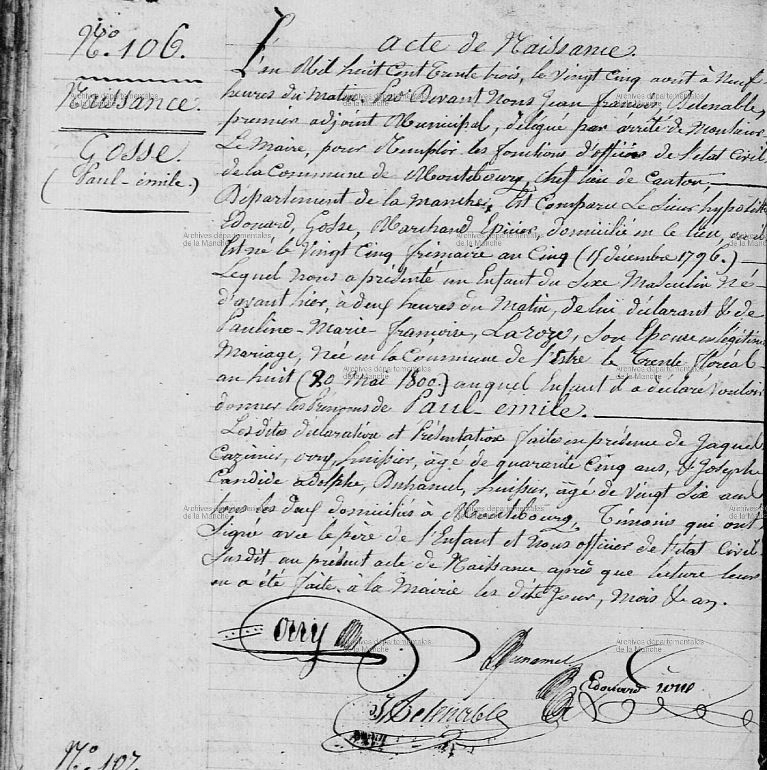 N.º 106.
Naissance
Gosse.
(Paul-émile.)
Acte de Naissance.
L'an Mil huit Cent Trente trois, le Vingt Cinq aout à Neuf
heures du Matin, Par Devant Nous Jean françois,
premier adjoint Municipal, délégué par arrêté de Monsieur
Le Maire, pour Remplir les fonctions d'officier de l'état Civil,
de la Commune de Montebourg, chef lieu de Canton,
Département de la Manche, Est Comparu Le Sieur hypolite
Edouard, Gosse, Marchand Epicier, domicilié en ce lieu, où il
Est né le Vingt Cinq frimaire an Cinq (15 décembre 1796.)
Lequel Nous a présenté un Enfant du Sexe Masculin Né
d'avant hier, à deux heures du Matin, de lui déclarant & de
Pauline-Marie-françoise, son Epouse en légitime
Mariage, Née en la Commune de l'Estre le Trente floréal
an huit (20 Mai 1800.) auquel Enfant il a déclaré Vouloir
donner les Prénoms de Paul-émile.
Lesdites déclaration et Présentation faites en présence de Jaques
Cazimir, ory, huissier, âgé de quarante Cinq ans, & Joseph
Candide adolphe, Duhamel, huissier, âgé de Vingt Six ans
tous les deux domiciliés à Montebourg, Témoins qui ont
Signé avec le père de l'Enfant et Nous officier de l'état Civil
Susdit au présent acte de Naissance après que lecture leur
en a été faite. à la Mairie les dits Jour, Mois & an.
ory
Duhamel
Edouard Gosse
N.º 107.
Archives départementales
de la Manche